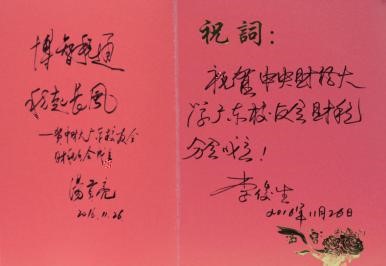 博智叠通
乘起长风
—贺中财大广东校友会
财税分会成立
汤贡亮
2016.11.26
祝詞：
祝贺中央财经大
学广东校友会财税
分会成立！
李俊生
2016年11月26日